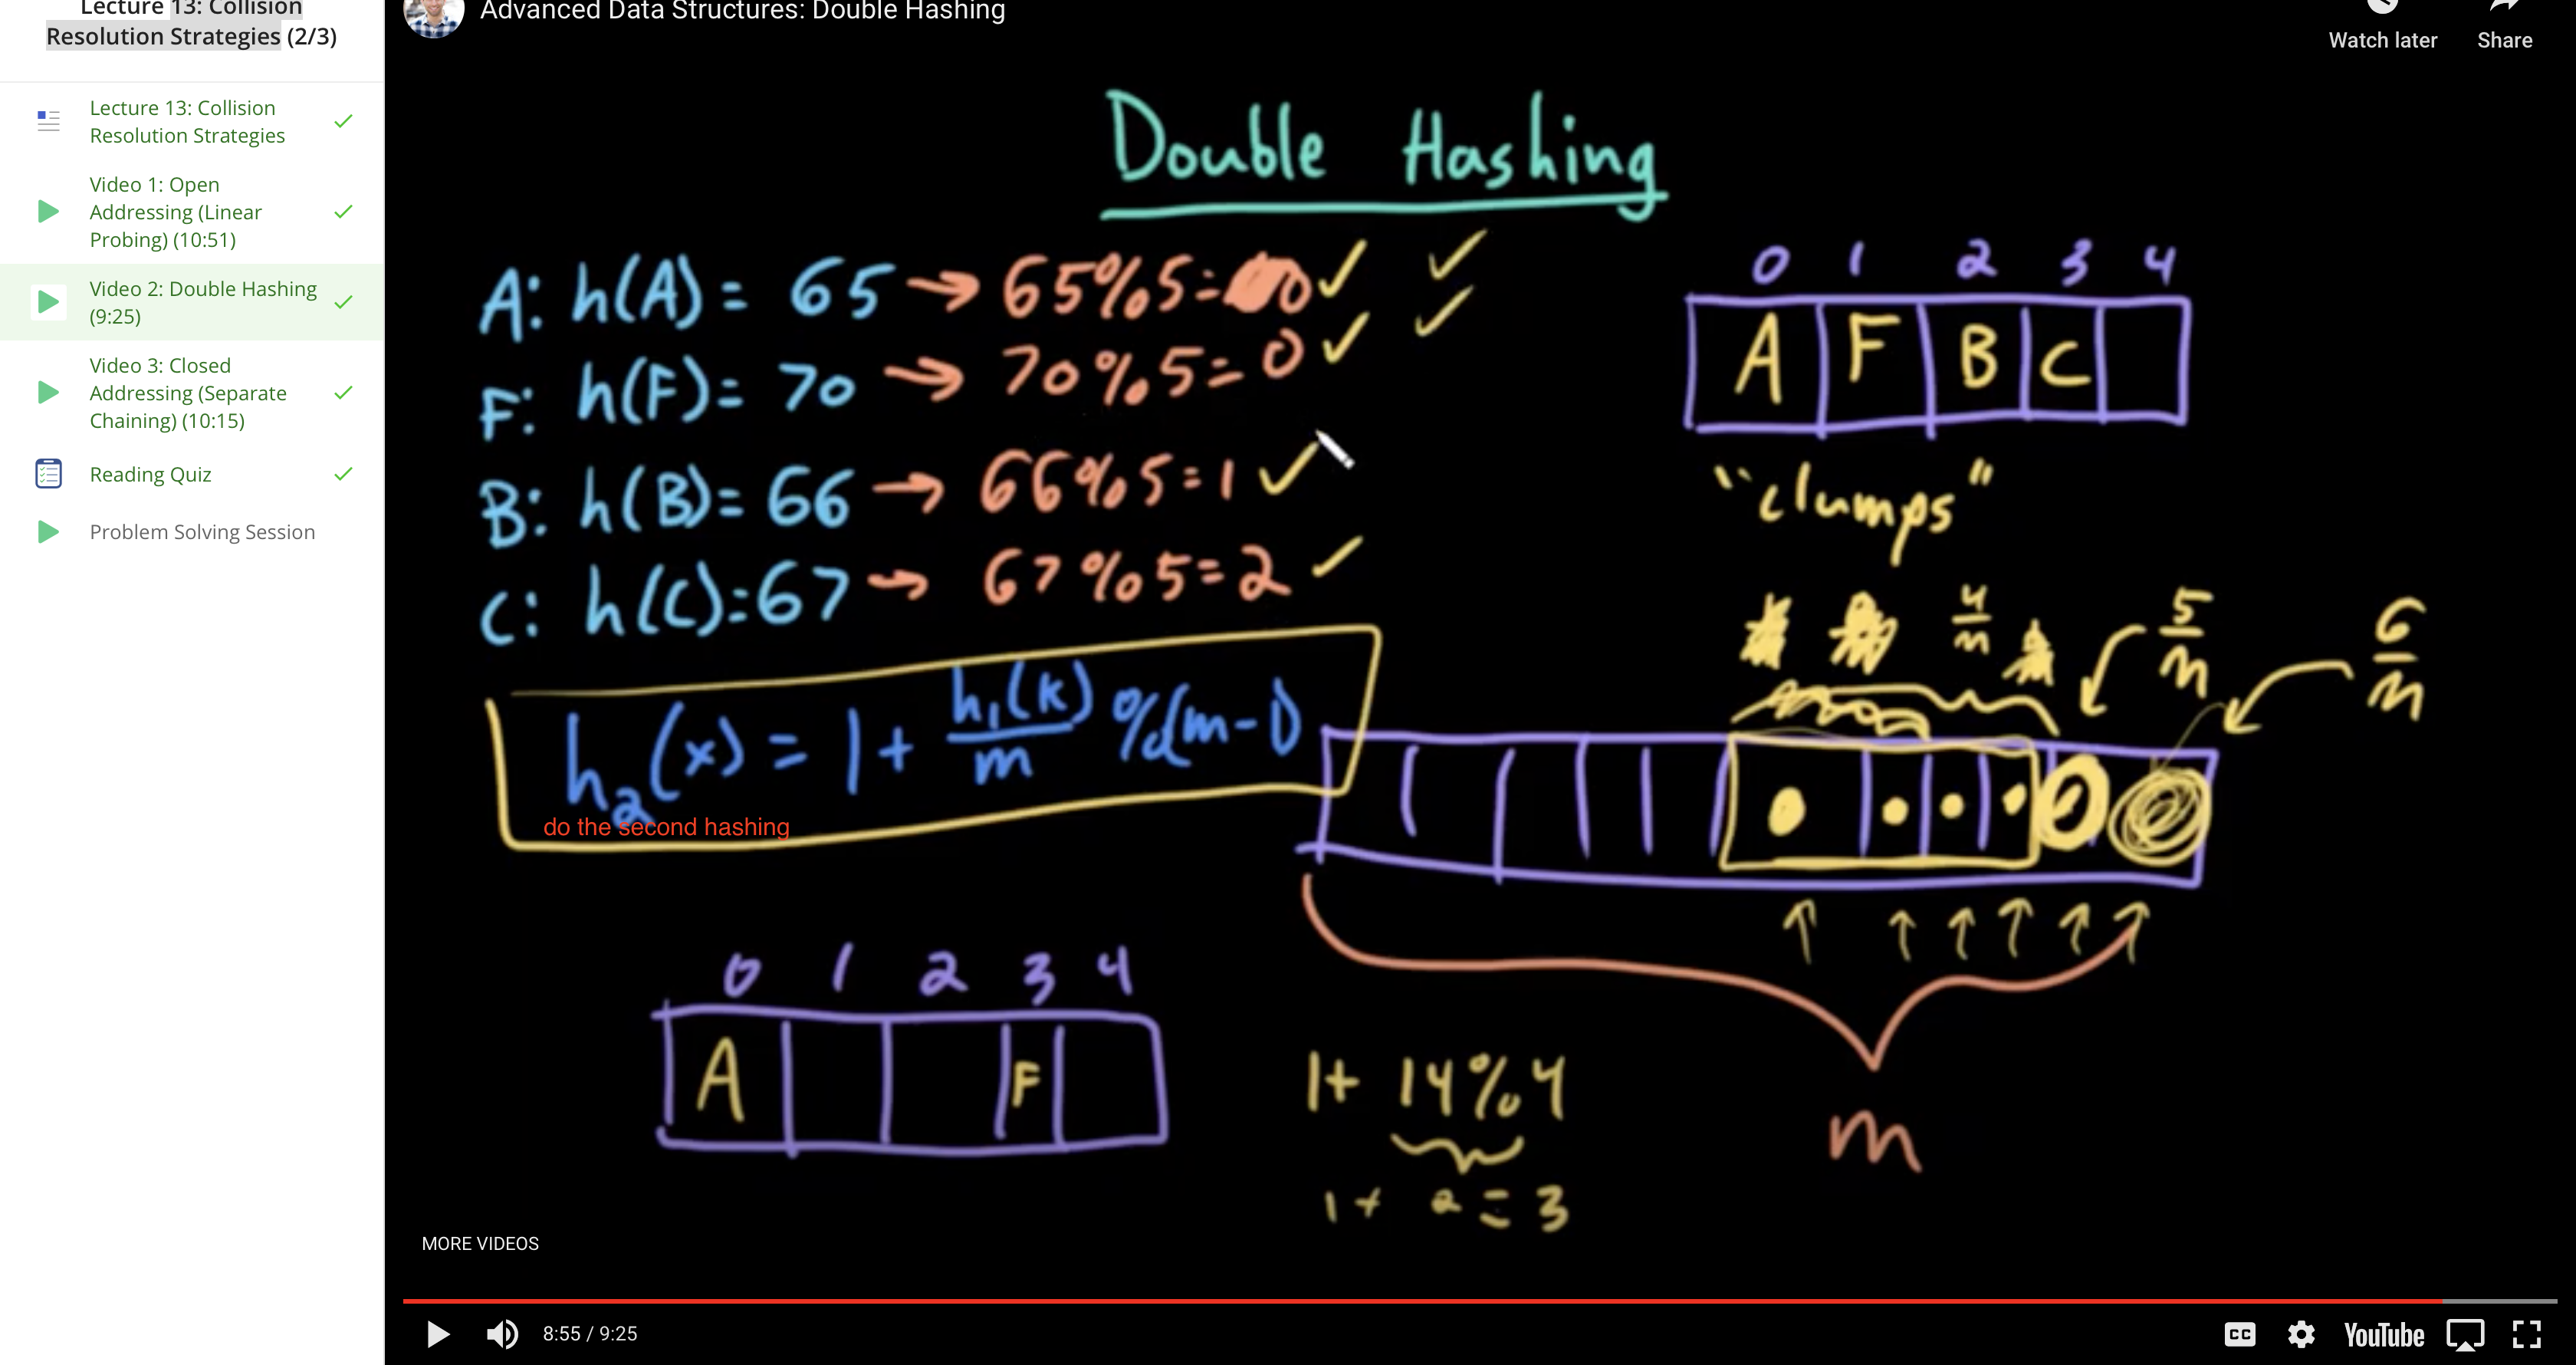 Lecture 13: Collision
Resolution Strategies (2/3)
Lecture 13: Collision
Resolution Strategies
Video 1: Open
Addressing (Linear
Probing) (10:51)
Video 2: Double Hashing
(9:25)
Video 3: Closed
Addressing (Separate
Chaining) (10:15)
Reading Quiz
Problem Solving Session
Advanced Data Structures: Double Hashing
Watch later
Share
Double Hashing
A: h(A) = 65 → 65%5=0 ✓ ✓
F: h(F) = 70 → 70%5=0 ✓ ✓
B: h(B)= 66 → 66%5=1 ✓
C: h(C)=67 → 67%5=2 ✓
h₂(x) = 1 + h₁(k)/m %(m-1)
do the second hashing
0 1 2 3 4
A F B C
"clumps"
4/m 5/m 6/m
0 1 2 3 4
A F
1+ 14%4
1+ 2 = 3
m
MORE VIDEOS
8:55 / 9:25
CC
YouTube